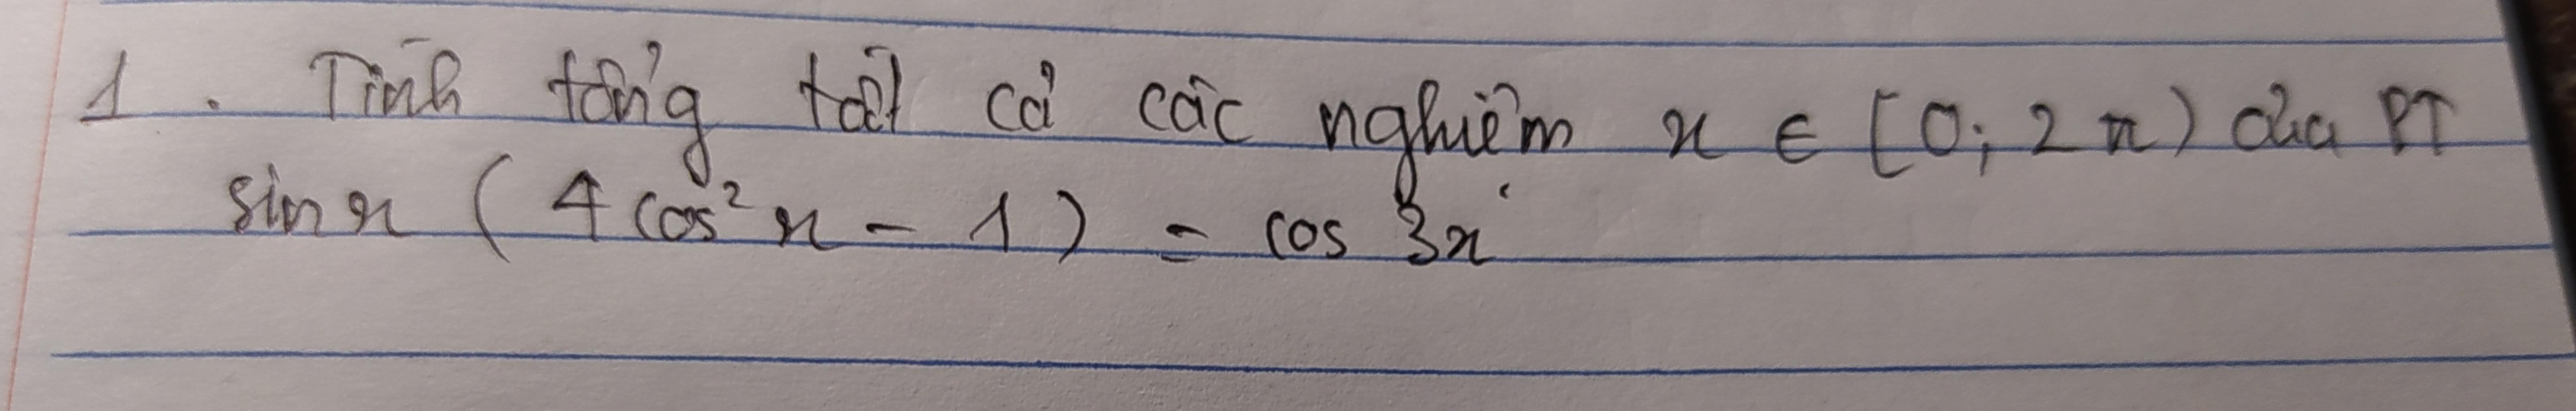 1. Tính tổng tất cả các nghiệm x ∈ [0; 2π) của PT
sin x (4 cos² x - 1) = cos 3x